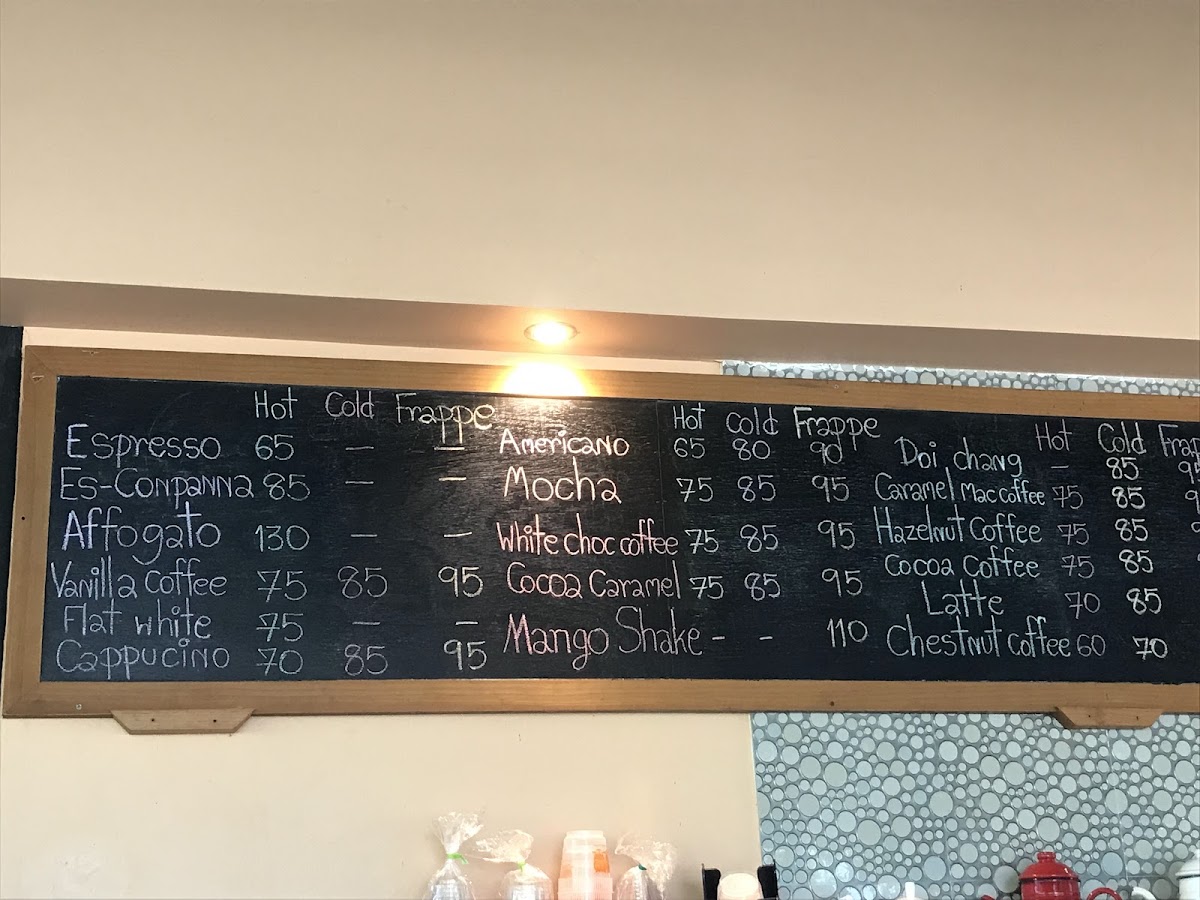 Hot Cold Frappe
Espresso 65 — —
Es-Conpanna 85 — —
Affogato 130 — —
Vanilla coffee 75 85 95
Flat white 75 — —
Cappucino 70 85 95
Hot Cold Frappe
Americano 65 80 90
Mocha 75 85 95
White choc coffee 75 85 95
Cocoa Caramel 75 85 95
Mango Shake - - 110
Hot Cold
Doi chang — 85
Caramel Mac coffee 75 85
Hazelnut Coffee 75 85
Cocoa Coffee 75 85
Latte 70 85
Chestnut coffee 60 70